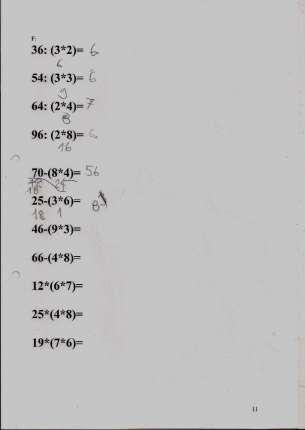 F.
36: (3*2)= 6
6
54: (3*3)= 6
9
64: (2*4)= 7
8
96: (2*8)= 6
16
70-(8*4)= 56
25-(3*6)=
18 1
46-(9*3)=
66-(4*8)=
12*(6*7)=
25*(4*8)=
19*(7*6)=
11